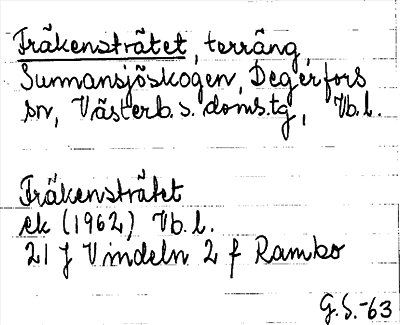 Fräkensträtet, terräng,
Summansjöskogen, Degerfors
sn, Västerb. s. doms.tg, Vb.l.
Fräkensträtet
ek (1962) Vb.l.
21 J Vindeln 2 f Rambo
G.S.-63